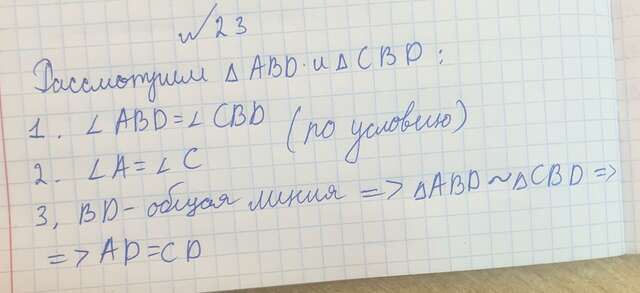 №23
Рассмотрим △ ABD и △ CBD:
1. ∠ ABD = ∠ CBD (по условию)
2. ∠ A = ∠ C
3, BD - общая линия => △ABD ~ △CBD =>
=> AD = CD